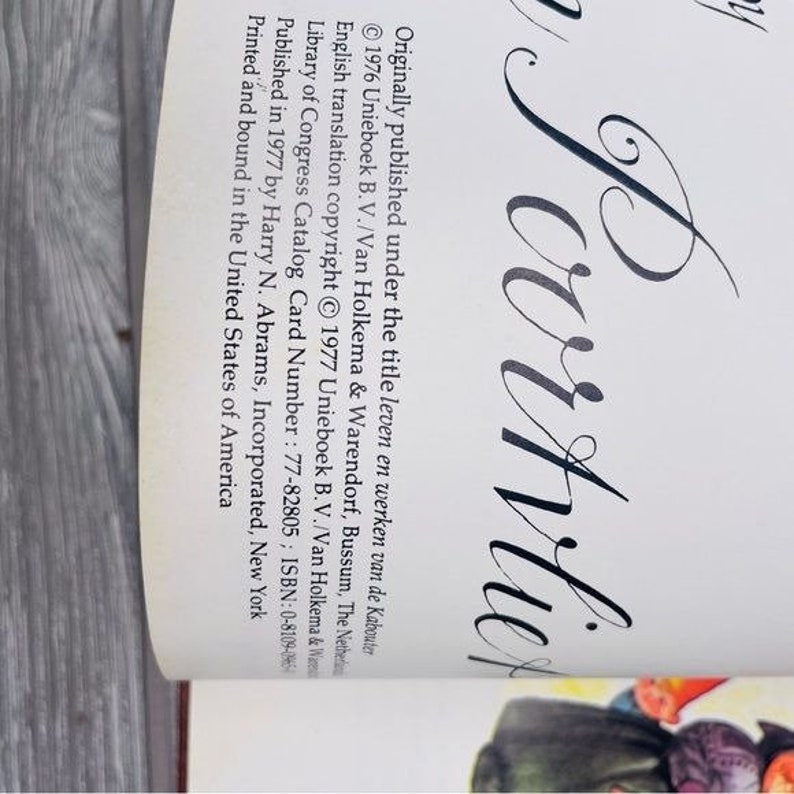 Poortvliet
Originally published under the title leven en werken van de Kabouter
© 1976 Unieboek B.V./Van Holkema & Warendorf, Bussum, The Netherlands
English translation copyright © 1977 Unieboek B.V./Van Holkema &
Library of Congress Catalog Card Number : 77-82805 ; ISBN: 0-8109-0965-0
Published in 1977 by Harry N. Abrams, Incorporated, New York
Printed and bound in the United States of America